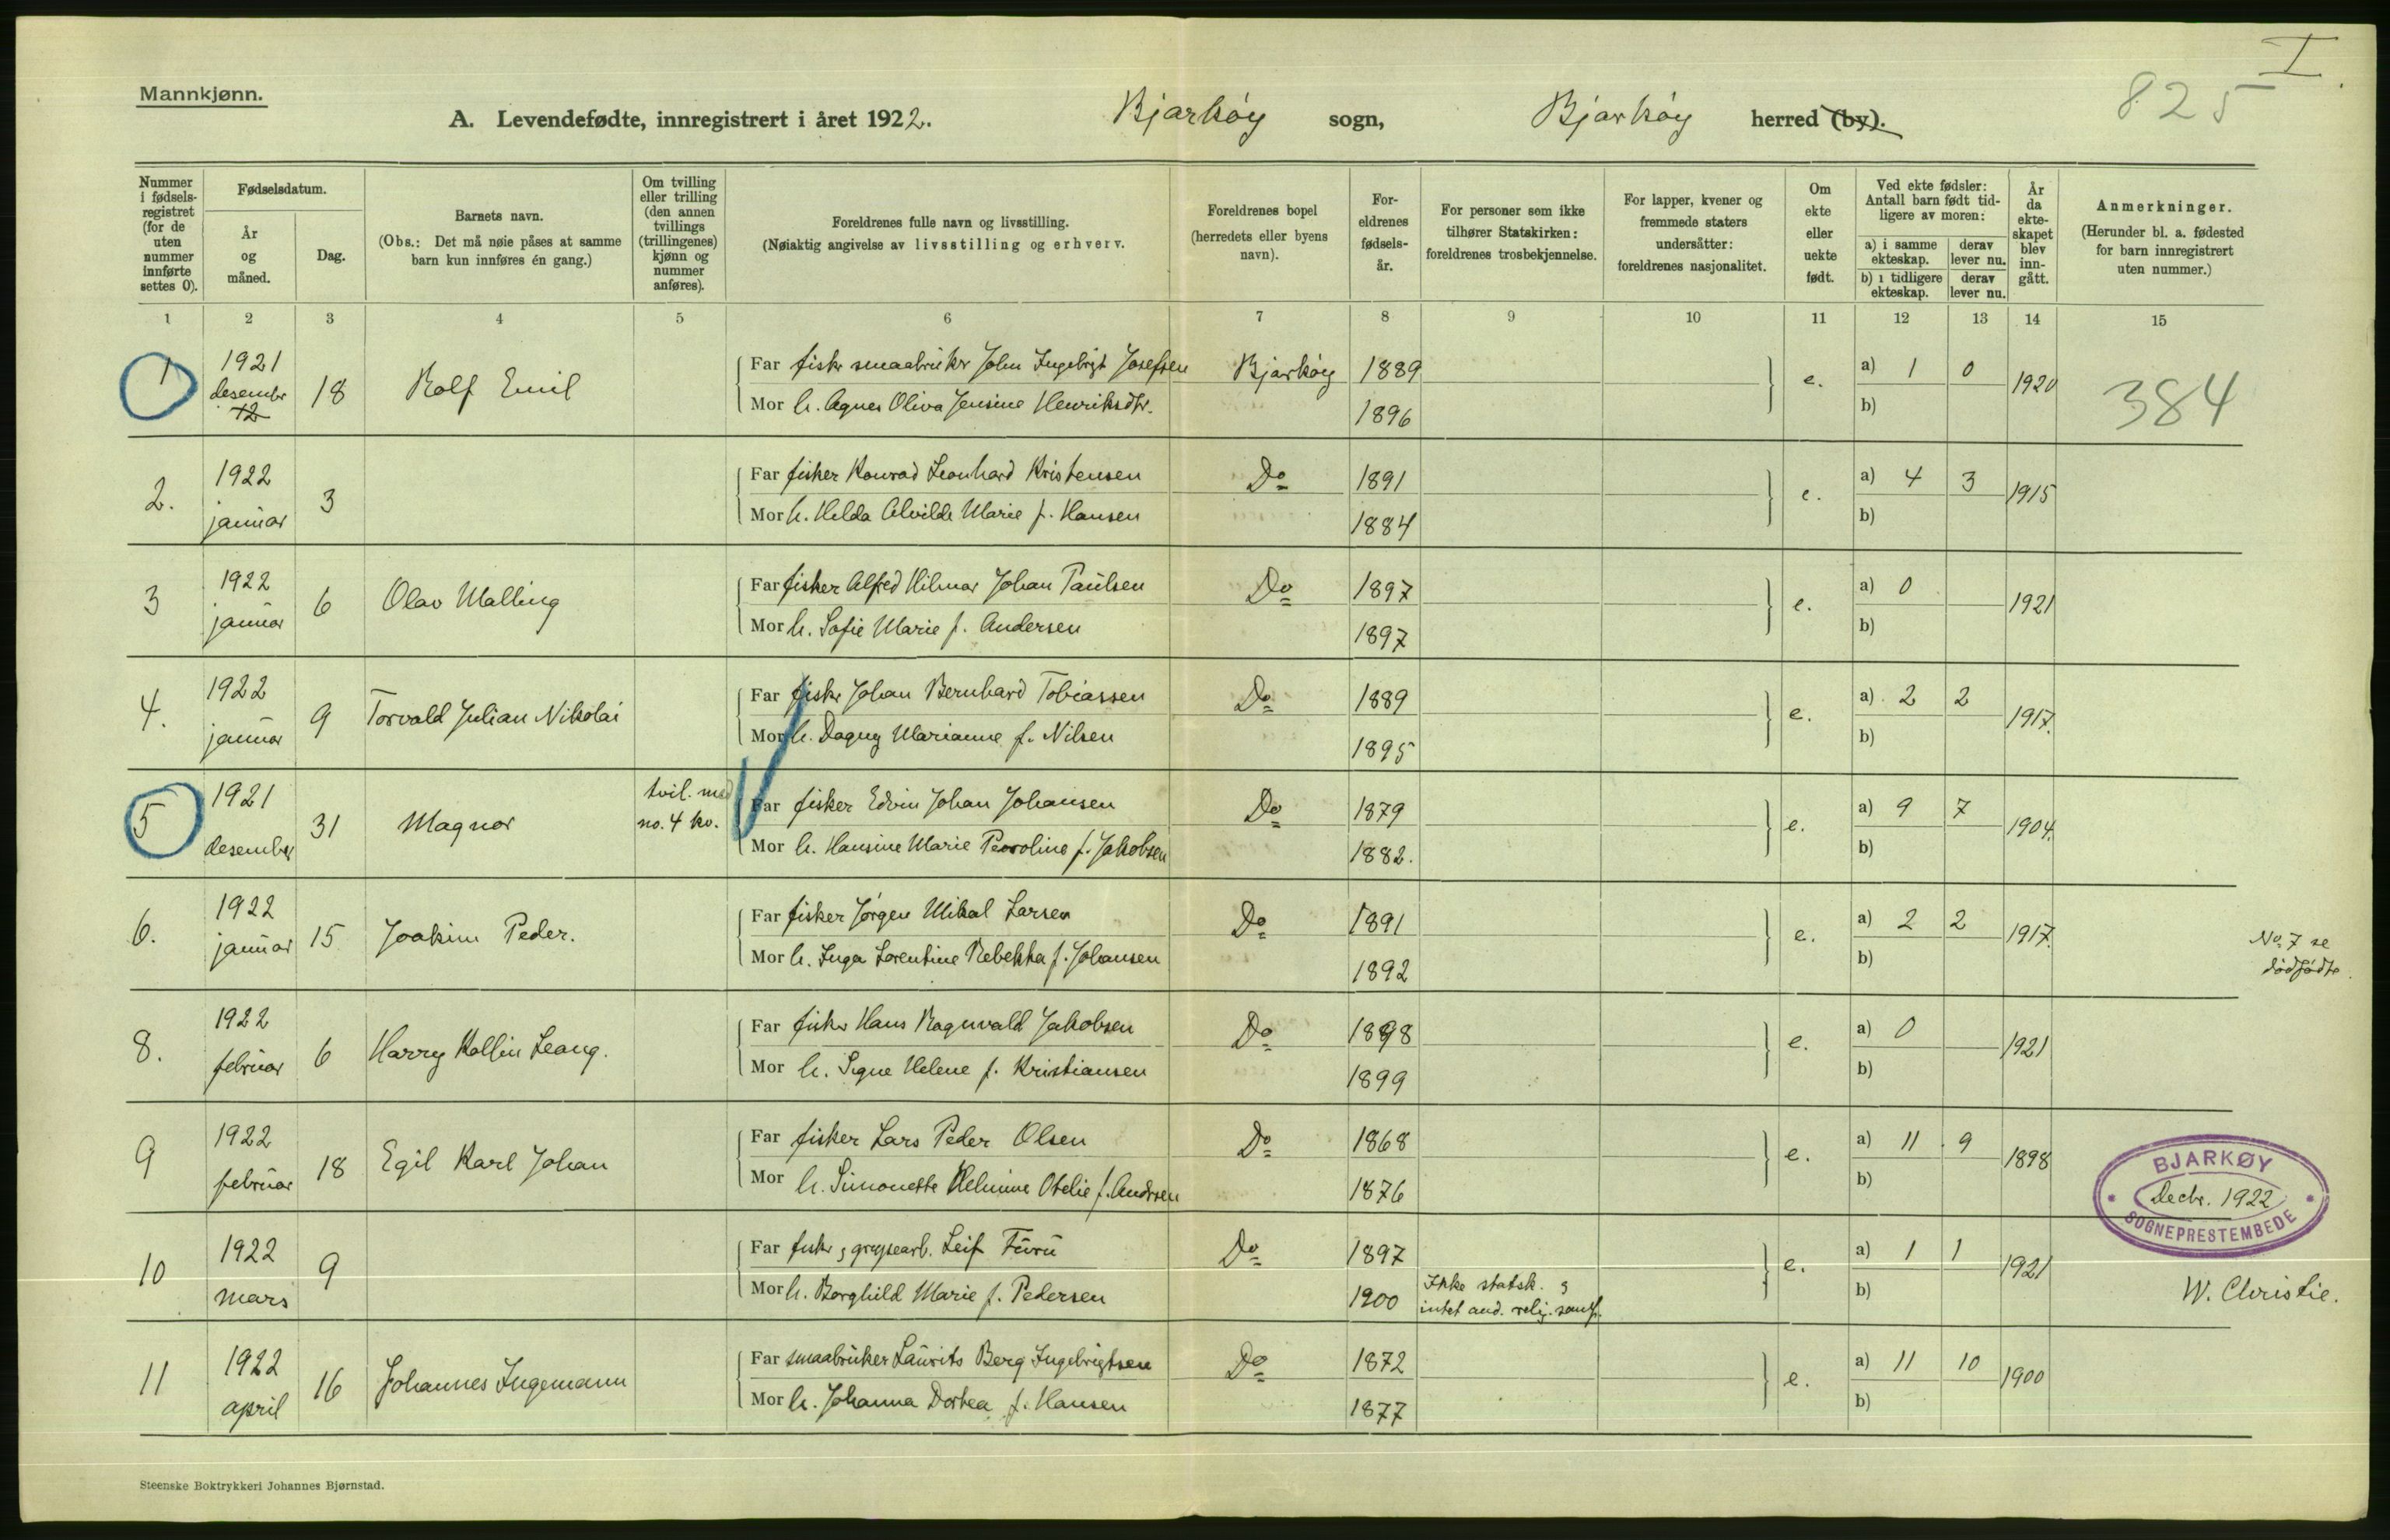 I
825
Mannkjønn.
A. Levendefødte, innregistrert i året 1922. Bjarkøy sogn, Bjarkøy herred (by).
Nummer i fødsels-registret (for de uten nummer innførte settes 0).
Fødselsdatum.
År og måned.
Dag.
Barnets navn.
(Obs.: Det må nøie påses at samme barn kun innføres én gang.)
Om tvilling eller trilling (den annen tvillings (trillingenes) kjønn og nummer anføres).
Foreldrenes fulle navn og livsstilling.
(Nøiaktig angivelse av livsstilling og erhverv.
Foreldrenes bopel (herredets eller byens navn).
For-eldrenes fødsels-år.
For personer som ikke tilhører Statskirken: foreldrenes trosbekjennelse.
For lapper, kvener og fremmede staters undersåtter: foreldrenes nasjonalitet.
Om ekte eller uekte født.
Ved ekte fødsler: Antall barn født tid-ligere av moren:
a) i samme ekteskap.
derav lever nu.
b) i tidligere ekteskap.
derav lever nu.
År da ekte-skapet blev inn-gått.
Anmerkninger.
(Herunder bl. a. fødested for barn innregistrert uten nummer.)
1 2 3 4 5 6 7 8 9 10 11 12 13 14 15
1 1921 desembr 12 18 Rolf Emil
Far fiskr smaabrukr John Ingebrigt Josefsen Bjarkøy 1889
Mor h. Agnes Oliva Jensine Henriksdtr. 1896
e. a) 1 0 b) 1920 384
2. 1922 januar 3
Far fisker Konrad Leonhard Kristensen Do 1891
Mor h. Helda Alvilde Marie f. Hansen 1884
e. a) 4 3 b) 1915
3 1922 januar 6 Olav Malling
Far fisker Alfred Hilmar Johan Paulsen Do 1897
Mor h. Sofie Marie f. Andersen 1897
e. a) 0 b) 1921
4. 1922 januar 9 Torvald Julian Nikolai
Far fiskr Johan Bernhard Tobiassen Do 1889
Mor h. Dagny Marianne f. Nilsen 1895
e. a) 2 2 b) 1917.
5 1921 desember 31 Magnor tvil. med no. 4 kv.
Far fisker Edvin Johan Johansen Do 1879
Mor h. Hansine Marie Peroline f. Jakobsen 1882.
e. a) 9 7 b) 1904.
6. 1922 januar 15 Joakim Peder.
Far fisker Jørgen Mikal Larsen Do 1891
Mor h. Inga Lorentine Rebekka f. Johansen 1892
e. a) 2 2 b) 1917.
No 7 se
dødfødte.
8. 1922 februar 6 Harry Kollin Leang.
Far fiskr Hans Ragnvald Jakobsen Do 1898
Mor h. Signe Helene f. Kristiansen 1899
e. a) 0 b) 1921
9 1922 februar 18 Egil Karl Johan
Far fisker Lars Peder Olsen Do 1868
Mor h. Simonette Helmine Otelie f. Andrsen 1876
e. a) 11 9 b) 1898
BJARKØY
Decbr. 1922
SOGNEPRESTEMBEDE
10 1922 mars 9
Far fiskr og Leif Furu Do 1897
Mor h. Borghild Marie f. Pedersen 1900 Ikke statsk. og
intet and. relig. samf.
e. a) 1 1 b) 1921
W. Christie.
11 1922 april 16 Johannes Ingemann
Far smaabruker Laurits Berg Ingebrigtsen Do 1872
Mor h. Johanna Dortea f. Hansen 1877
e. a) 11 10 b) 1900
Steenske Boktrykkeri Johannes Bjørnstad.